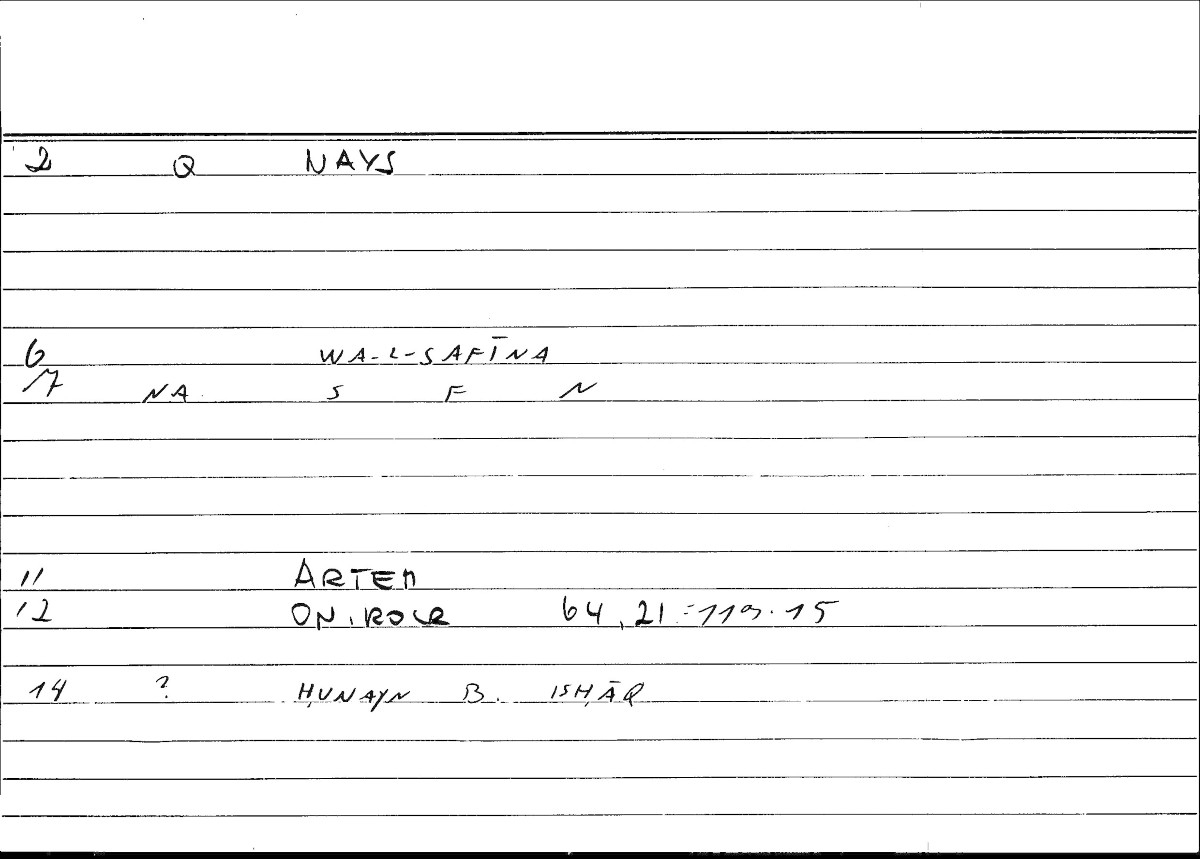 2 Q NAYS
6 WA-L-SAFĪNA
7 NA S F N
11 ARTEM
12 ONIROCR 64, 21 = 119.15
14 ? ḤUNAYN B. ISḤĀQ